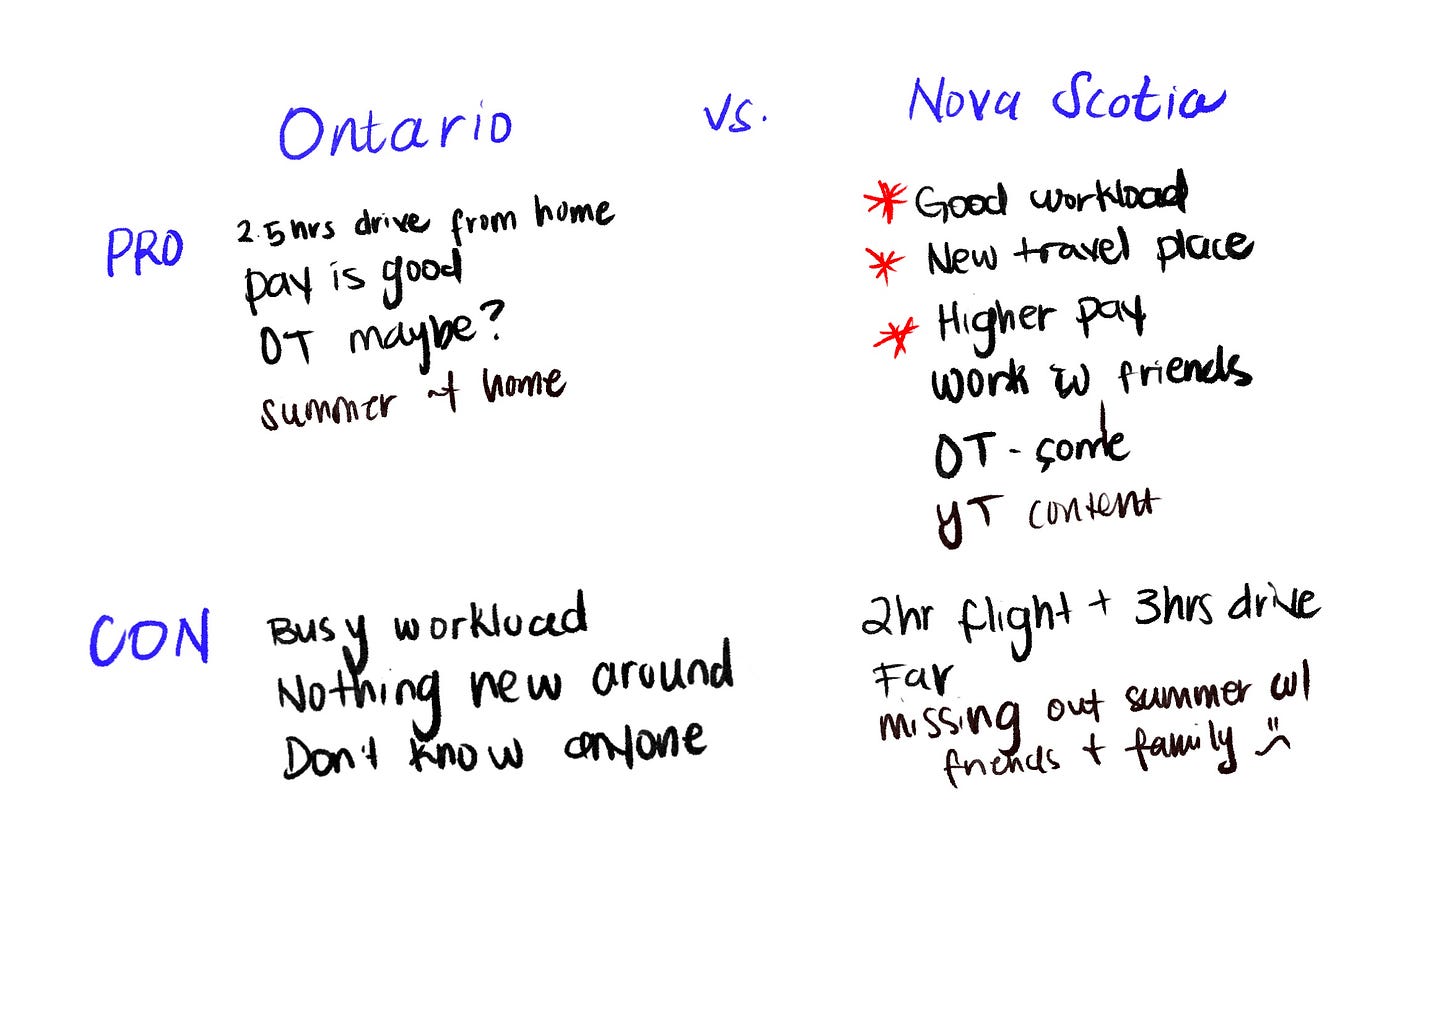 Ontario vs. Nova Scotia
PRO
2.5hrs drive from home
pay is good
OT maybe?
summer at home
* Good workload
* New travel place
* Higher pay
work w friends
OT - some
YT content
CON
Busy workload
Nothing new around
Don't know anyone
2hr flight + 3hrs drive
Far
missing out summer w/
friends + family